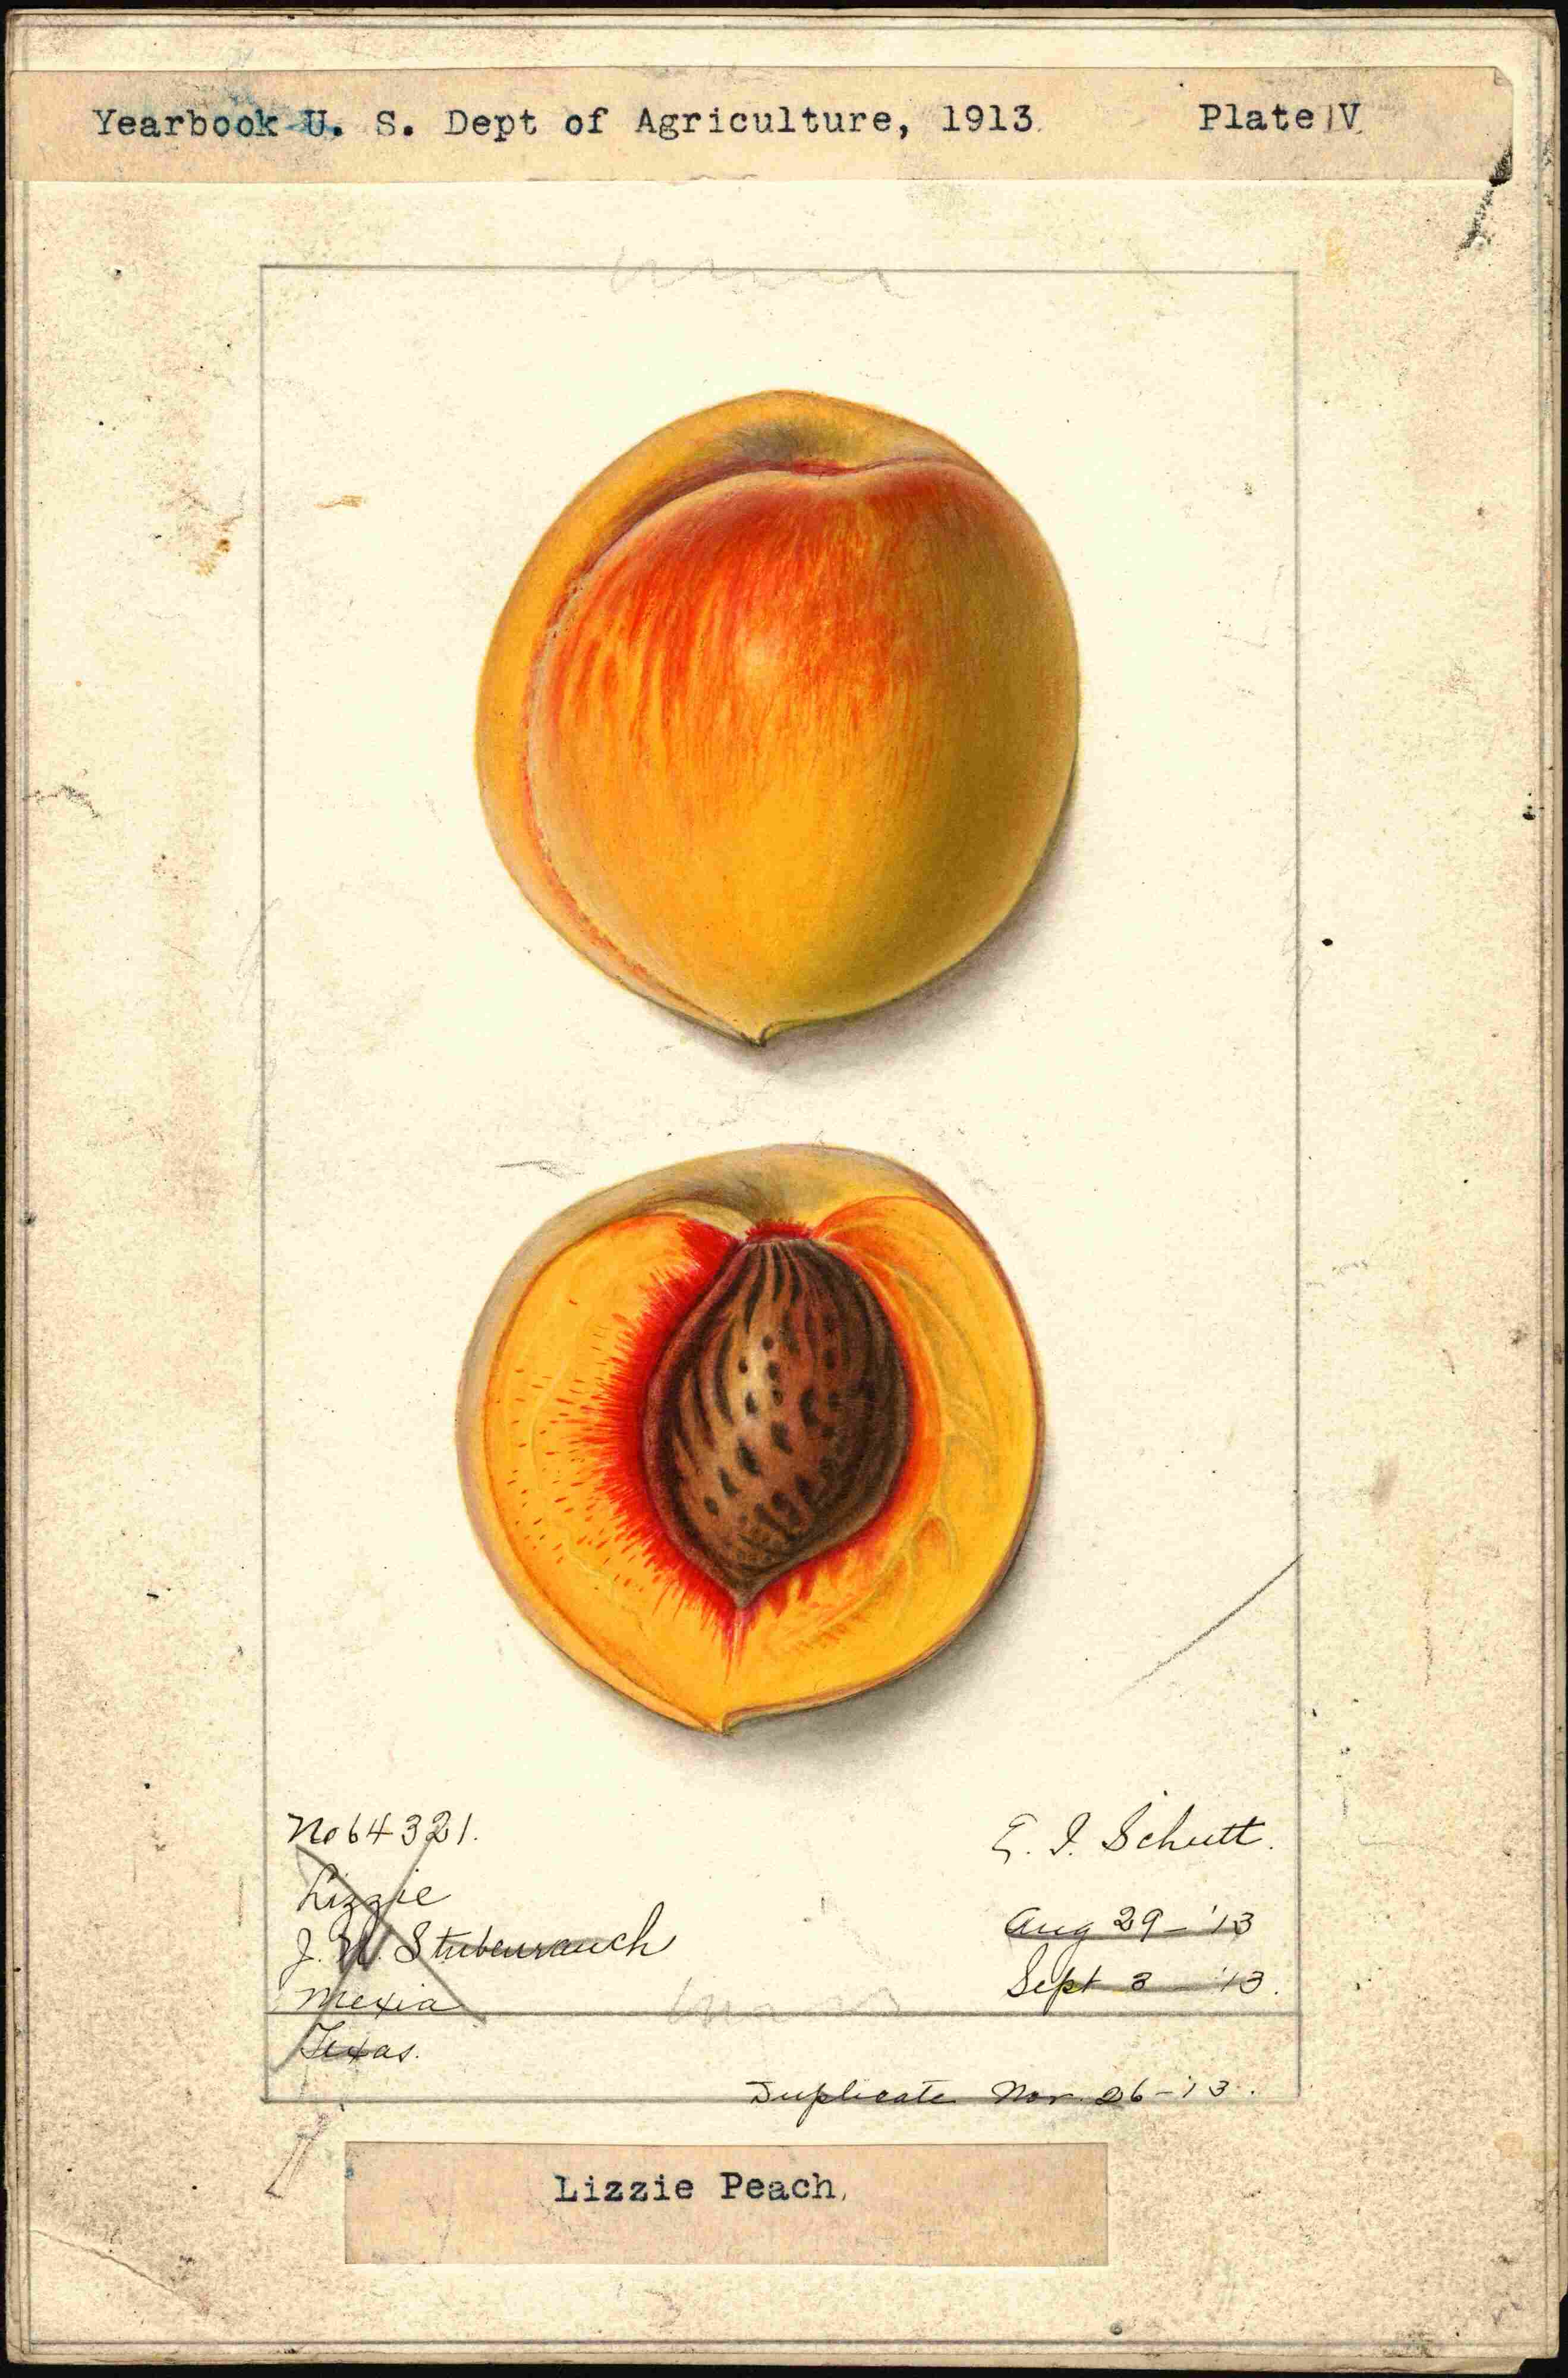 Yearbook U. S. Dept of Agriculture, 1913. Plate IV
No 64321.
Lizzie
J. W. Stubenrauch
Mexia
Texas.
E. I. Schutt.
Aug 29 - '13
Sept 3 - '13.
Duplicate Nov. 26 - '13.
Lizzie Peach.